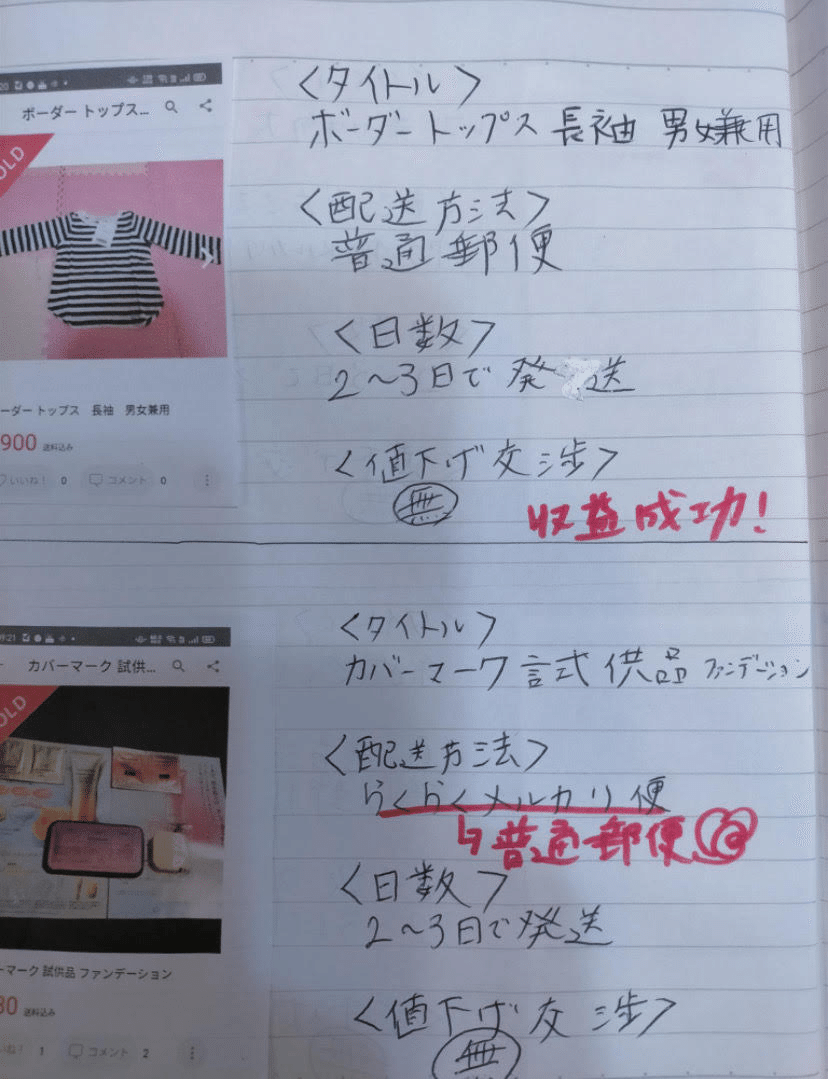 <タイトル>
ボーダートップス 長袖 男女兼用
<配送方法>
普通郵便
<日数>
2〜3日で発送
<値下げ交渉>
無
収益成功!
ボーダー トップス...
OLD
ーダー トップス 長袖 男女兼用
900 送料込み
いいね! 0 コメント 0
<タイトル>
カバーマーク 試供品 ファンデーション
<配送方法>
らくらくメルカリ便
↳普通郵便
<日数>
2〜3日で発送
<値下げ交渉>
無
9:21
カバーマーク 試供...
OLD
ーマーク 試供品 ファンデーション
80 送料込み
いね! 1 コメント 2